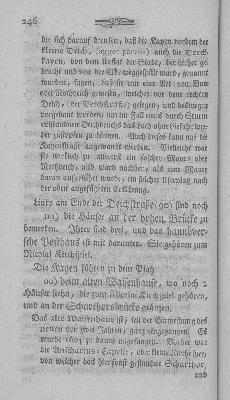 246
die sich darauf deuten, daß die Kayen vordem der
kleine Deich, (agger parvus) auch die Dreck-
kayen, von dem Unflat der Stadt, der hieher ge-
bracht und von der Elbe weggespült ward, genannt
wurden, sagen, so war hier nur eine Art von Vor-
oder Nothdeich gewöhnlich, welcher vor dem rechten
Deich, (der Deichstraße) gelegen, und deswegen
vorgebauet worden, um im Fall eines durch Sturm
entstandnen Deichbruchs das Loch ohne Gefahr wie-
der zustopfen zu können. Eben das kann auch auf die
Kayenstraße angewandt werden. Vielleicht war
es nicht einmal ein solcher Moor- oder
Nothdeich, und ward nachher, als eine Mauer
daran aufgeführt wurde, ein solcher
der oben angeführten Erklärung.
Links am Ende der Deichstraße (90) sind noch
nn) die Häuser an der hohen Brücke zu
bemerken. Ihrer sind drei, und das hannöver-
sche Posthaus ist mit darunter. Sie gehören zum
Nicolai Kirchspiel.
Die Kayen führen zu dem Platz
oo) beim alten Waisenhause, wo noch 2
Häuser stehn, die zum Nicolai Kirchspiel gehören,
und an der Schaarthorsbrücke gränzen.
Das alte Waisenhaus ist, seit der Einweihung des
neuen vor zwei Jahren, ganz eingegangen. Es
wurde 1604 zu bauen angefangen. Vorher war
die Anscharius-Capelle, oder kleine Kirche hier,
von welcher das hierselbst gestandne Schaarthor,
und